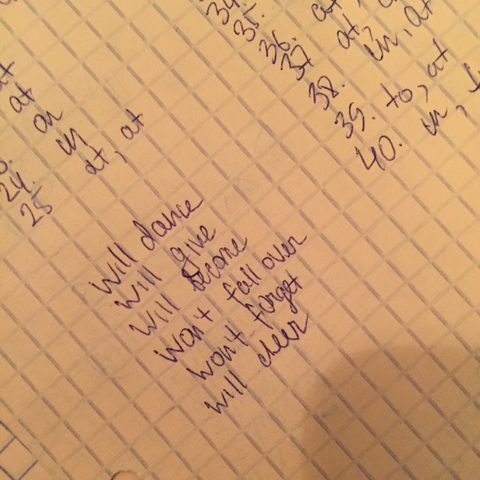 at
at
on
24. in
25 at, at
35.
36. at
37 at
38. in, at
39. to, at
40. in,
will dance
will give
will become
won't fall over
won't forget
will cheer